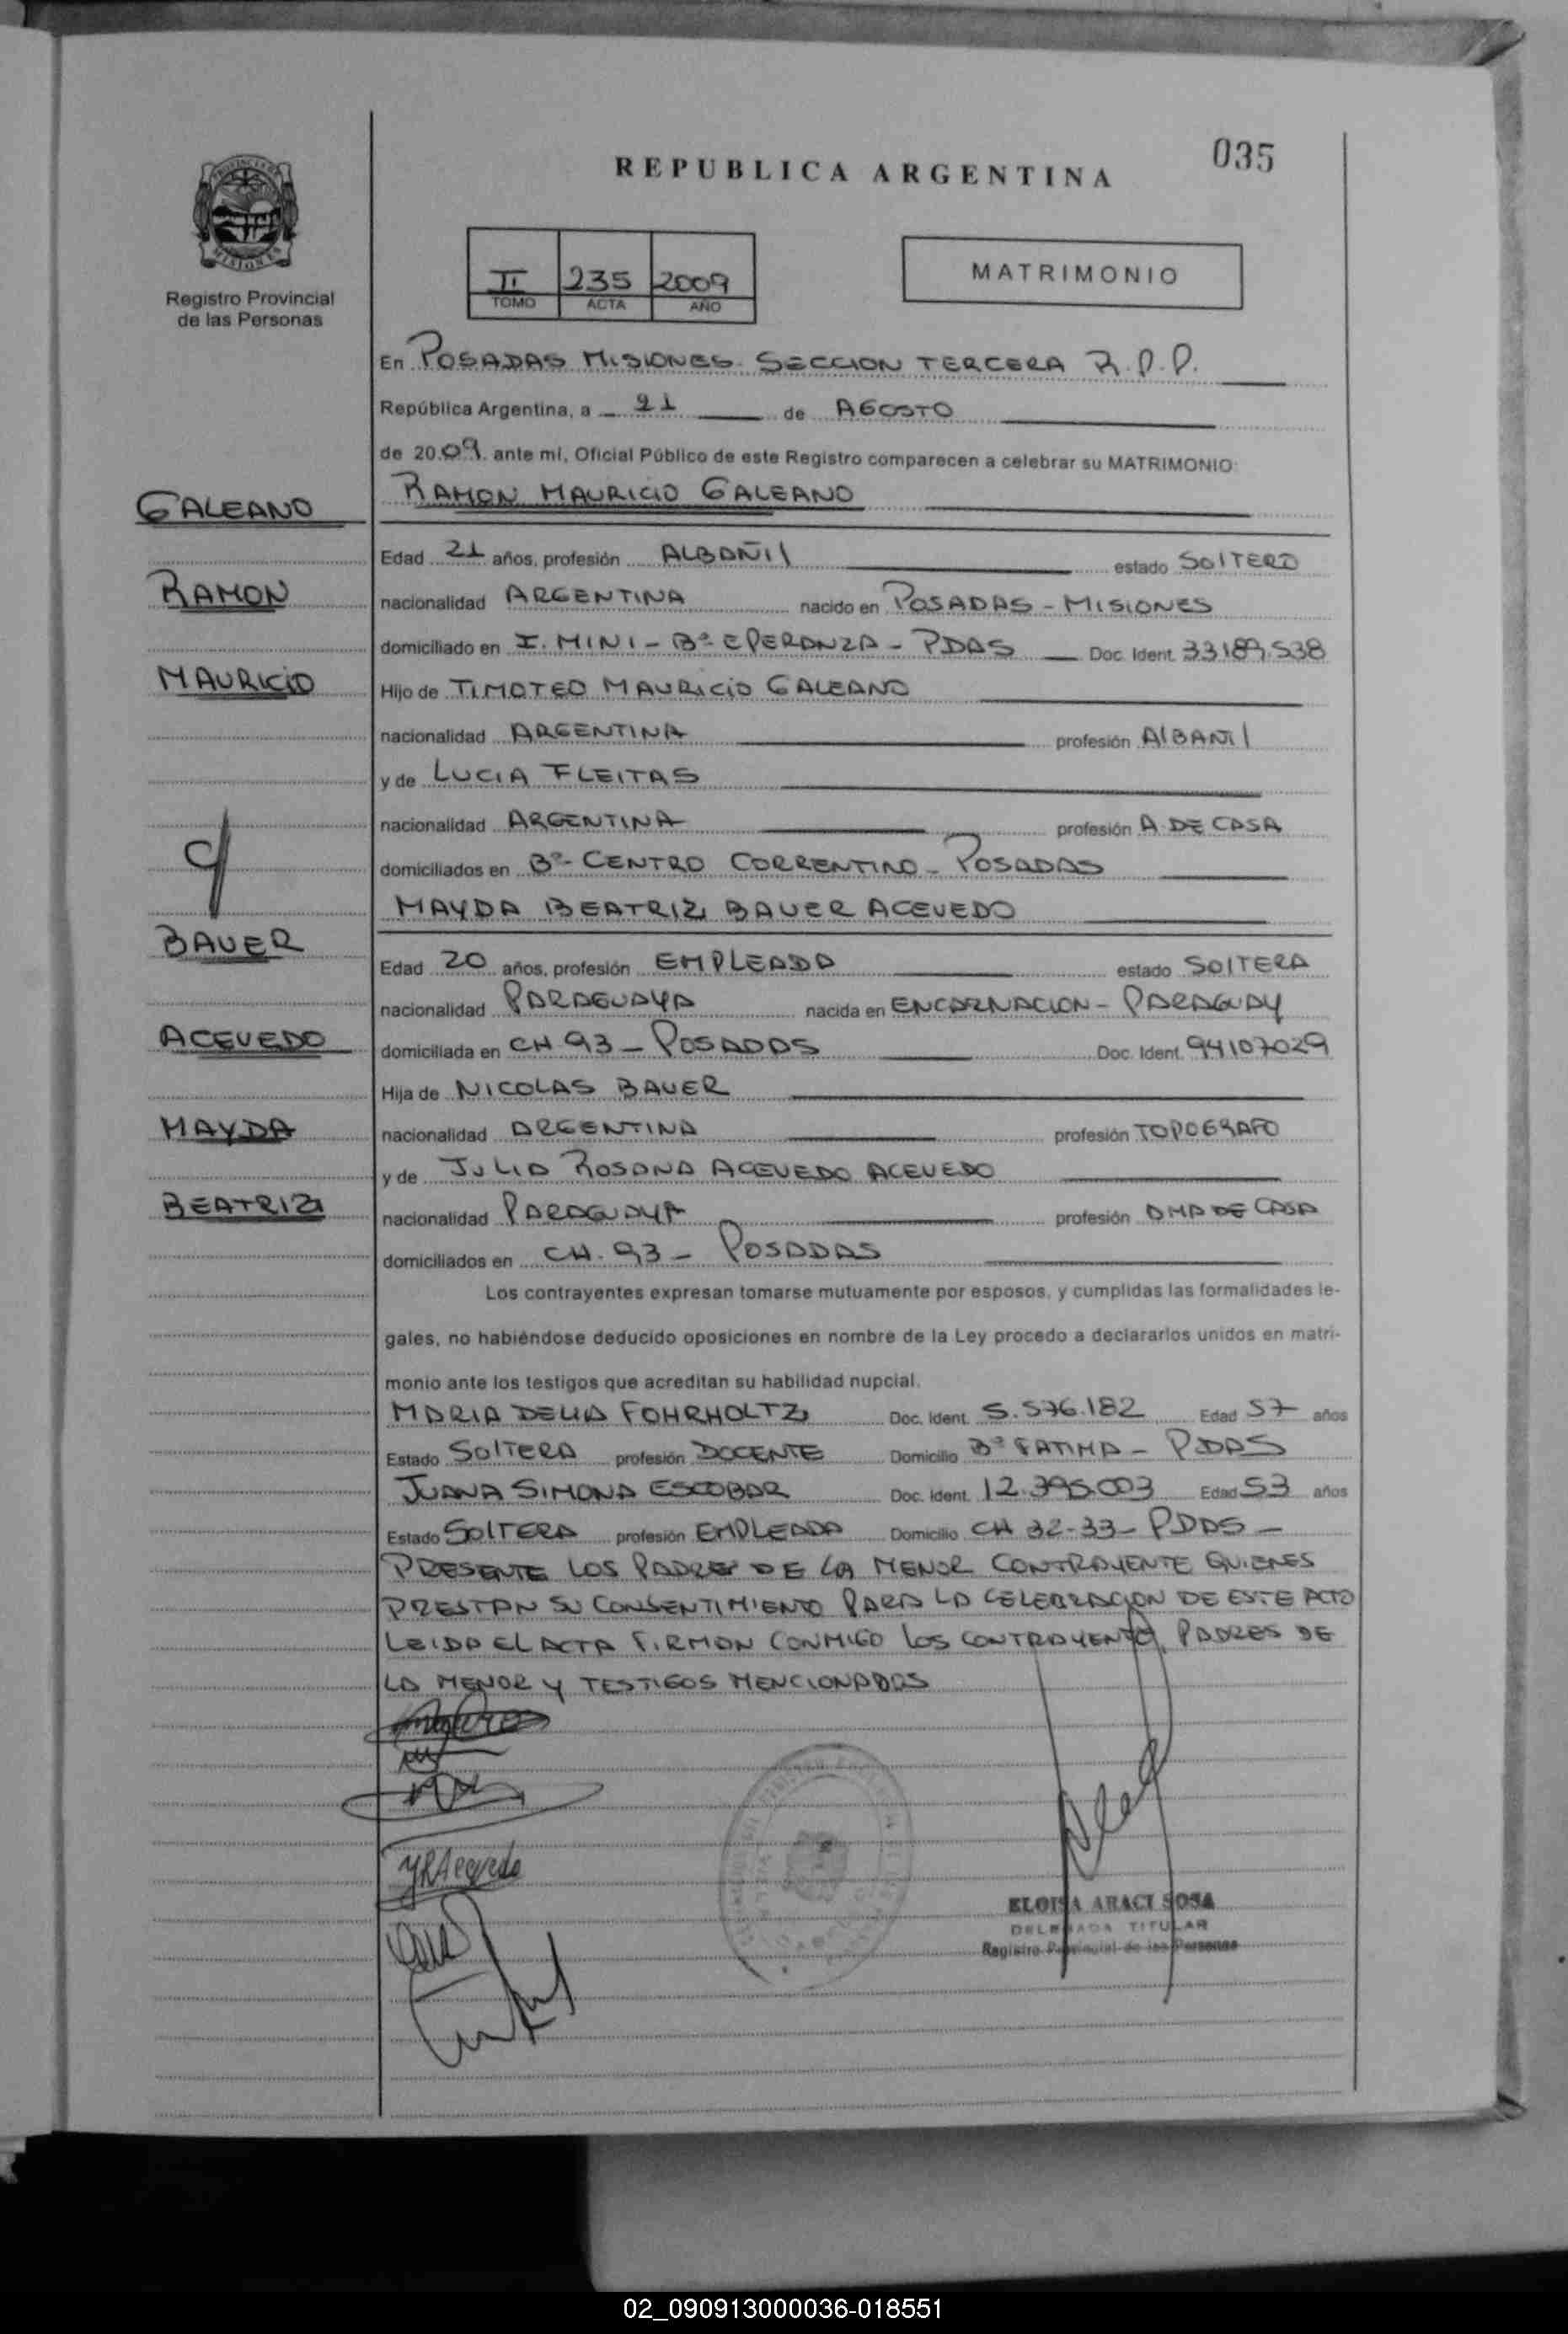 035
REPUBLICA ARGENTINA
PROVINCIA DE
MISIONES
Registro Provincial
de las Personas
II 235 2009
TOMO ACTA AÑO
MATRIMONIO
En POSADAS MISIONES. SECCION TERCERA R.P.P.
República Argentina, a 21 de AGOSTO
de 2009 ante mí, Oficial Público de este Registro comparecen a celebrar su MATRIMONIO:
GALEANO
RAMON MAURICIO GALEANO
Edad 21 años, profesión ALBAÑIL estado SOLTERO
RAMON
nacionalidad ARGENTINA nacido en POSADAS - MISIONES
domiciliado en I. MINI - Bº EPERANZA - PDAS Doc. Ident. 33189.538
MAURICIO
Hijo de TIMOTEO MAURICIO GALEANO
nacionalidad ARGENTINA profesión ALBAÑIL
y de LUCIA FLEITAS
nacionalidad ARGENTINA profesión A. DE CASA
domiciliados en Bº- CENTRO CORRENTINO - POSADAS
MAYDA BEATRIZ BAUER ACEVEDO
BAUER
Edad 20 años, profesión EMPLEADA estado SOLTERA
nacionalidad PARAGUAYA nacida en ENCARNACION - PARAGUAY
ACEVEDO
domiciliada en CH 93 - POSADAS Doc. Ident. 94107029
Hija de NICOLAS BAUER
MAYDA
nacionalidad ARGENTINA profesión TOPOGRAFO
y de JULIA ROSANA ACEVEDO ACEVEDO
BEATRIZ
nacionalidad PARAGUAYA profesión AMA DE CASA
domiciliados en CH. 93 - POSADAS
Los contrayentes expresan tomarse mutuamente por esposos, y cumplidas las formalidades le-
gales, no habiéndose deducido oposiciones en nombre de la Ley procedo a declararlos unidos en matri-
monio ante los testigos que acreditan su habilidad nupcial.
MARIA DELIA FOHRHOLTZ Doc. Ident. 5.576.182 Edad 57 años
Estado SOLTERA profesión DOCENTE Domicilio Bº FATIMA - PDAS
JUANA SIMONA ESCOBAR Doc. Ident. 12.395.003 Edad 53 años
Estado SOLTERA profesión EMPLEADA Domicilio CH 32-33 - PDAS -
PRESENTE LOS PADRES DE LA MENOR CONTRAYENTE QUIENES
PRESTAN SU CONSENTIMIENTO PARA LA CELEBRACION DE ESTE ACTO
LEIDA EL ACTA FIRMAN CONMIGO LOS CONTRAYENTES, PADRES DE
LA MENOR Y TESTIGOS MENCIONADOS
ELOISA ARACI SOSA
DELEGADA TITULAR
Registro Provincial de las Personas
02_090913000036-018551